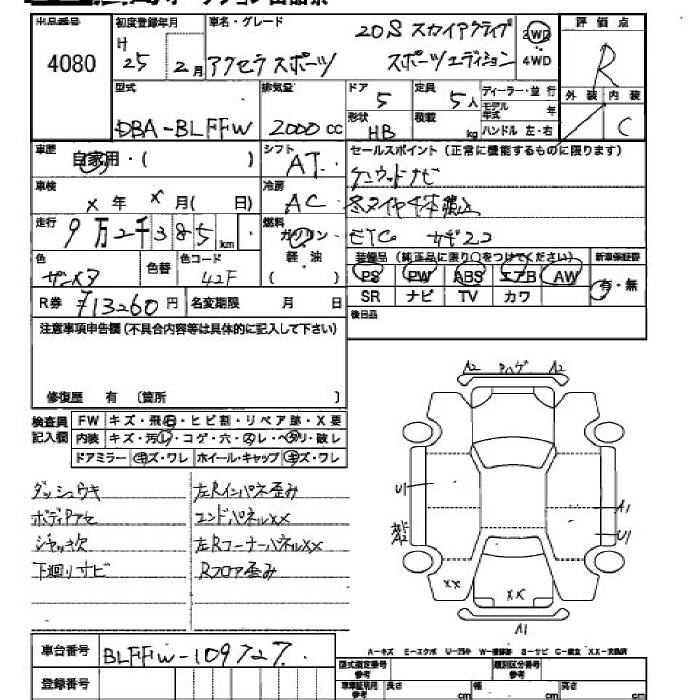 出品番号 初度登録年月 車名・グレード 20S スカイアクティブ 2WD 評価点
4080 H 25年 2月 アクセラスポーツ スポーツエディション ・4WD R
型式 排気量 ドア 定員 ディーラー・並行 外装 内装
DBA-BLFFW 2000cc 5 5人 モデル年式 年
形状 HB 積載 kg ハンドル 左・右 C
車歴 自家用・( ) シフト AT セールスポイント(正常に機能するものに限ります)
車検 X年 X月( 日) 冷房 AC ケンウッドナビ
冬タイヤ4本積込
走行 9万2千385km 燃料 ガソリン ETC
色 色替 色コード 42F 軽・油 ( ) 装備品(純正品に限り○をつけてください) 新車保証書
PS PW ABS エアB AW 有・無
R券 ¥13260円 名変期限 月 日 SR ナビ TV カワ
注意事項申告欄(不具合内容等は具体的に記入して下さい) 後日品
修復歴 有 〔箇所 〕
検査員記入欄 FW キズ・飛石・ヒビ割・リペア跡・X要
内装 キズ・汚レ・コゲ・穴・スレ・ヘタリ・破レ
ドアミラー キズ・ワレ ホイール・キャップ キズ・ワレ
A2 ハゲ A2
U1
A1
A2 U1
XX
XX
A1
ダッシュウキ 左Rインパネ歪み
ボディアセ エンドパネルXX
ジャッキ欠 左RコーナーパネルXX
下廻リサビ Rフロア歪み
車台番号 BLFFW-109727
A-キズ E-エクボ U-凹み W-補修跡 S-サビ C-腐食 XX-交換済
登録番号 型式指定番号 参考 類別区分番号 参考
車車証明用 参考 長さ cm 幅 cm 高さ cm